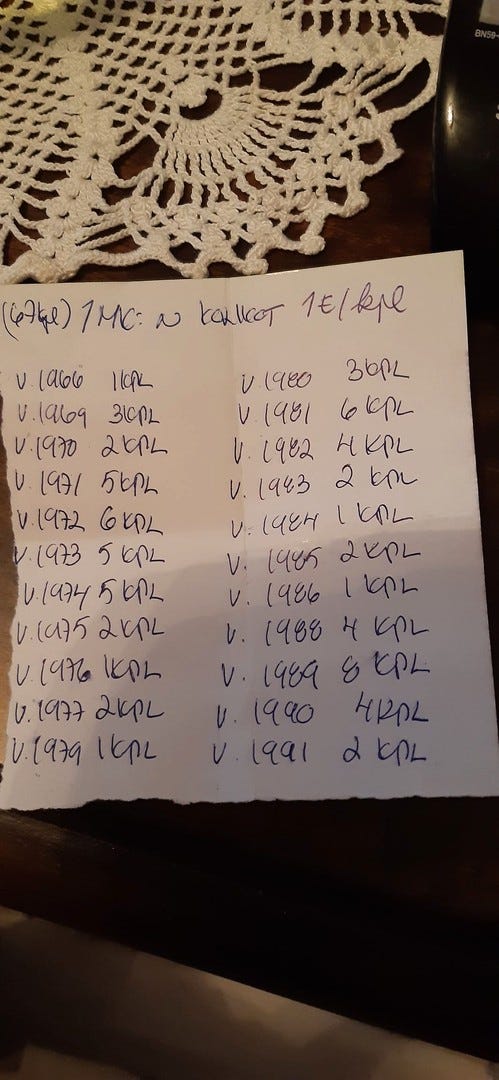 BN59-
(67kpl) 1MK:N KOLIKOT 1€/kpl
V.1966 1KPL
V.1969 3KPL
V.1970 2KPL
V.1971 5KPL
V.1972 6KPL
V.1973 5KPL
V.1974 5KPL
V.1975 2KPL
V.1976 1KPL
V.1977 2KPL
V.1979 1KPL
V.1980 3KPL
V.1981 6KPL
V.1982 4KPL
V.1983 2KPL
V.1984 1KPL
V.1985 2KPL
V.1986 1KPL
V.1988 4KPL
V.1989 8KPL
V.1990 4KPL
V.1991 2KPL